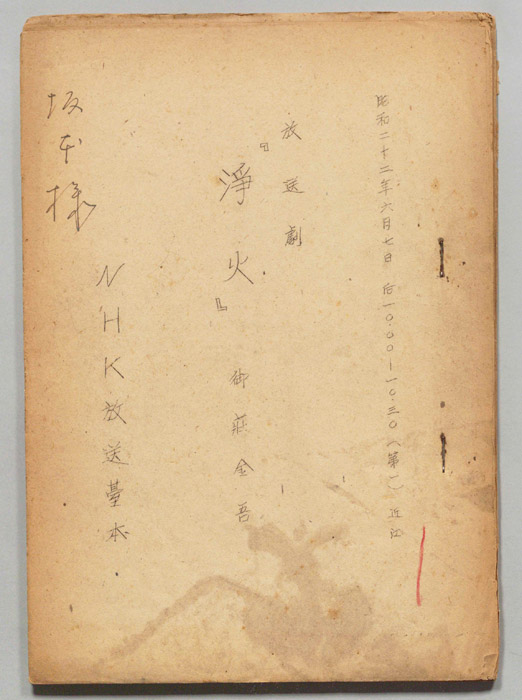 昭和二十二年六月七日 后一〇.〇〇―一〇.三〇(第一) 近江
放送劇
『淨火』 御莊金吾
NHK放送臺本
坂本様